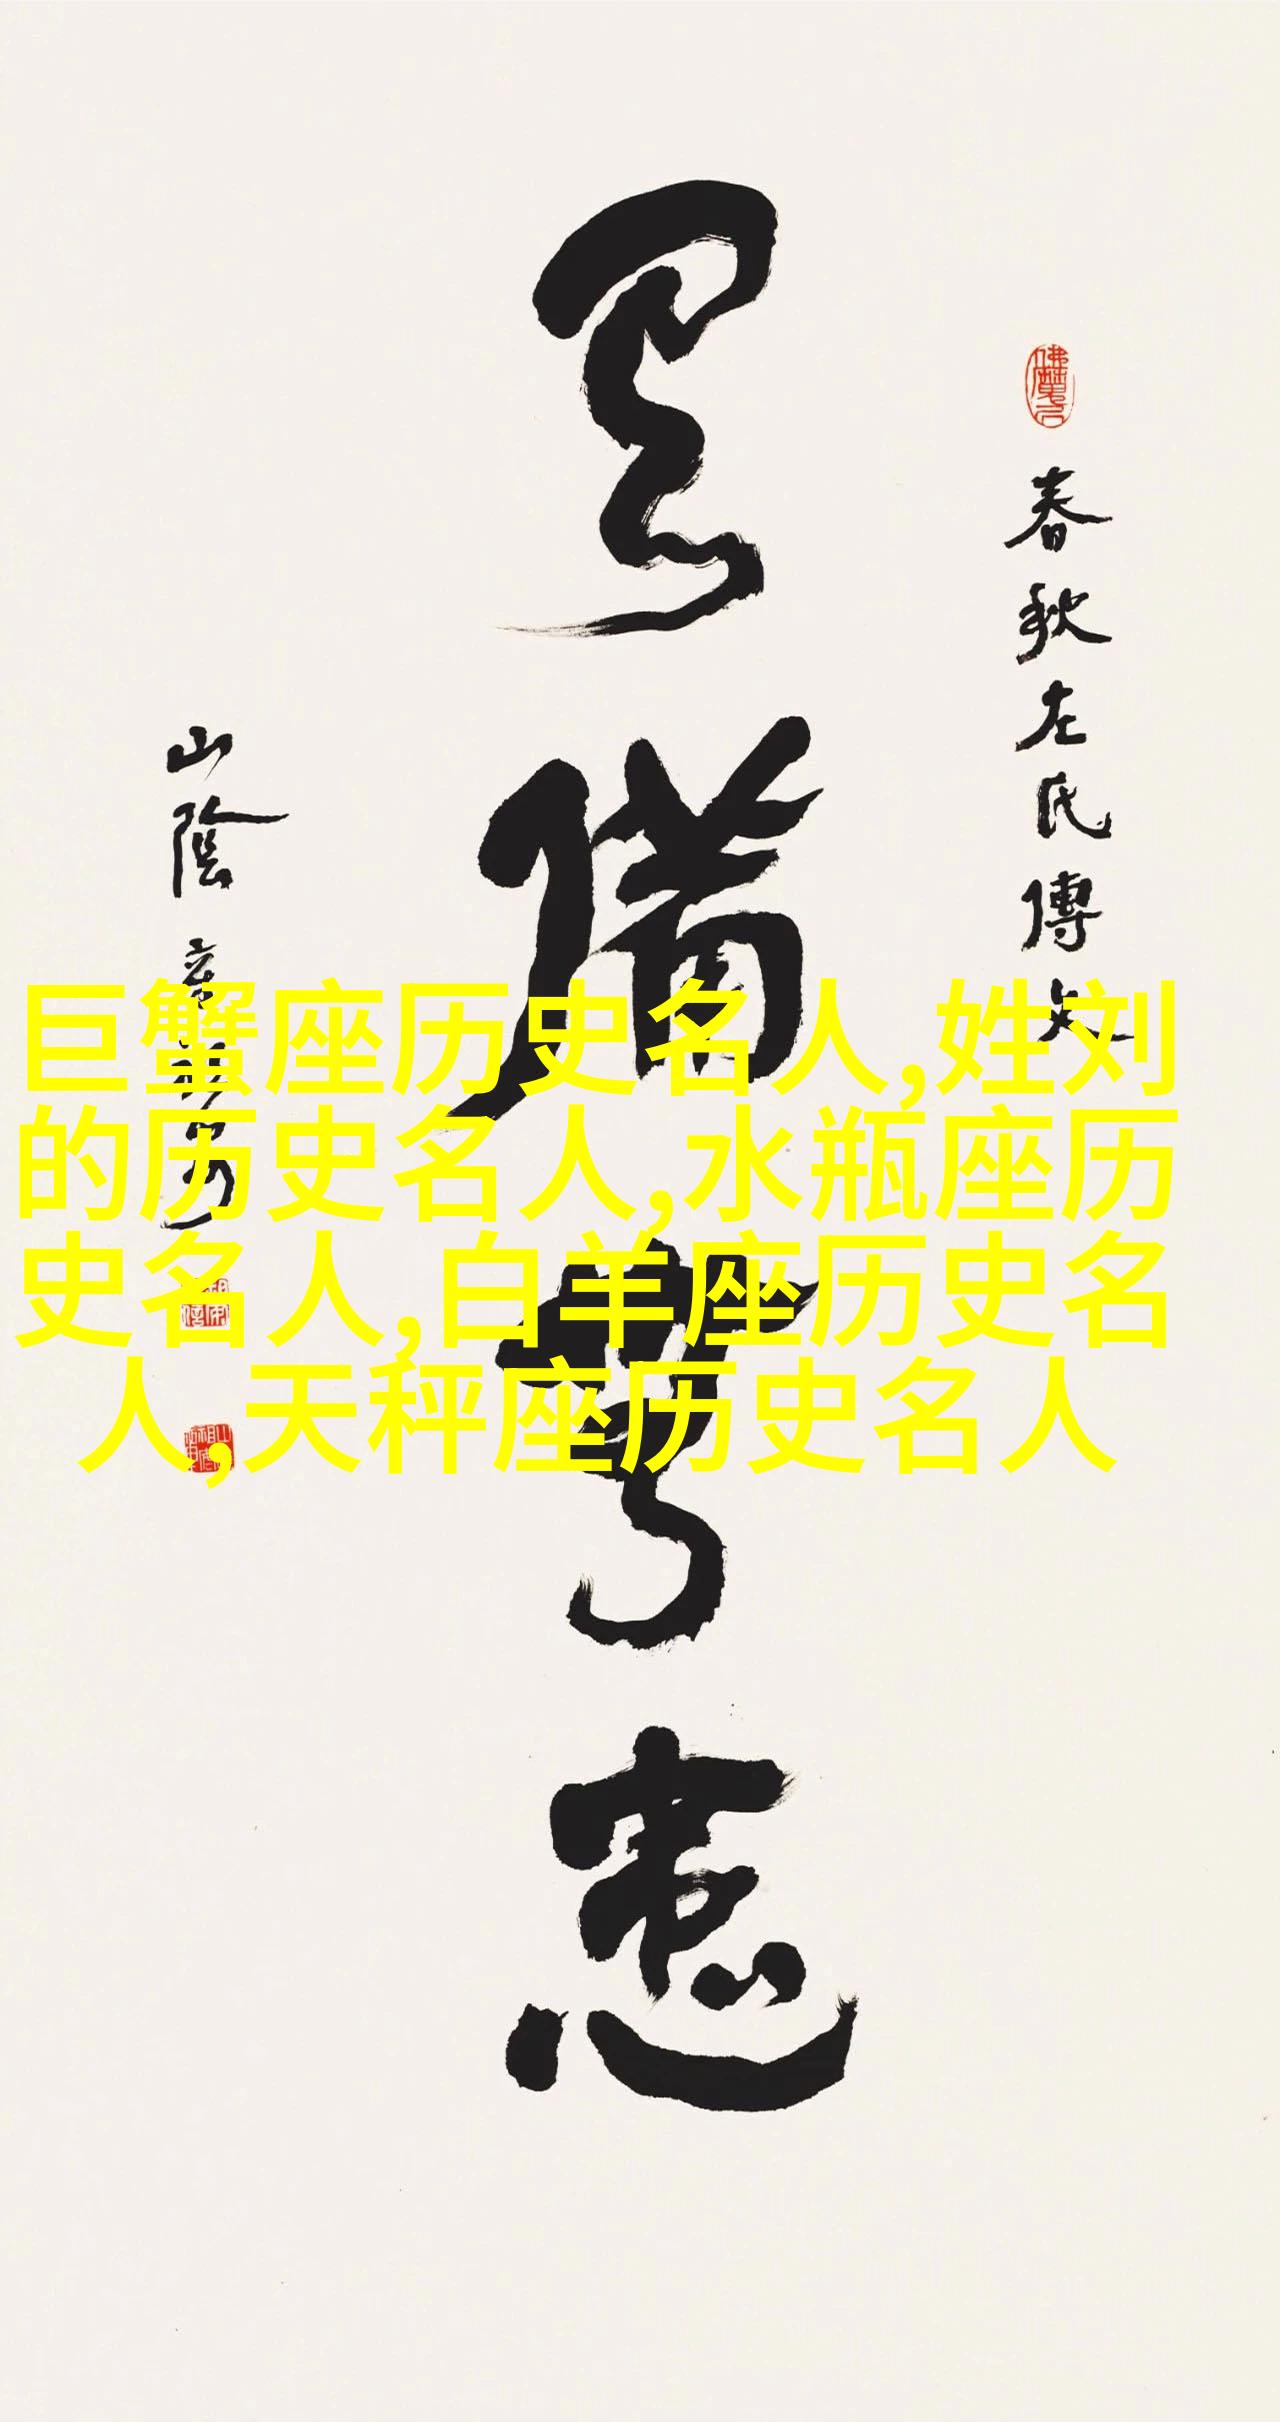 有備無患
春秋左氏傳句
山陰
巨蟹座历史名人,姓刘
的历史名人,水瓶座历
史名人,白羊座历史名
人,天秤座历史名人